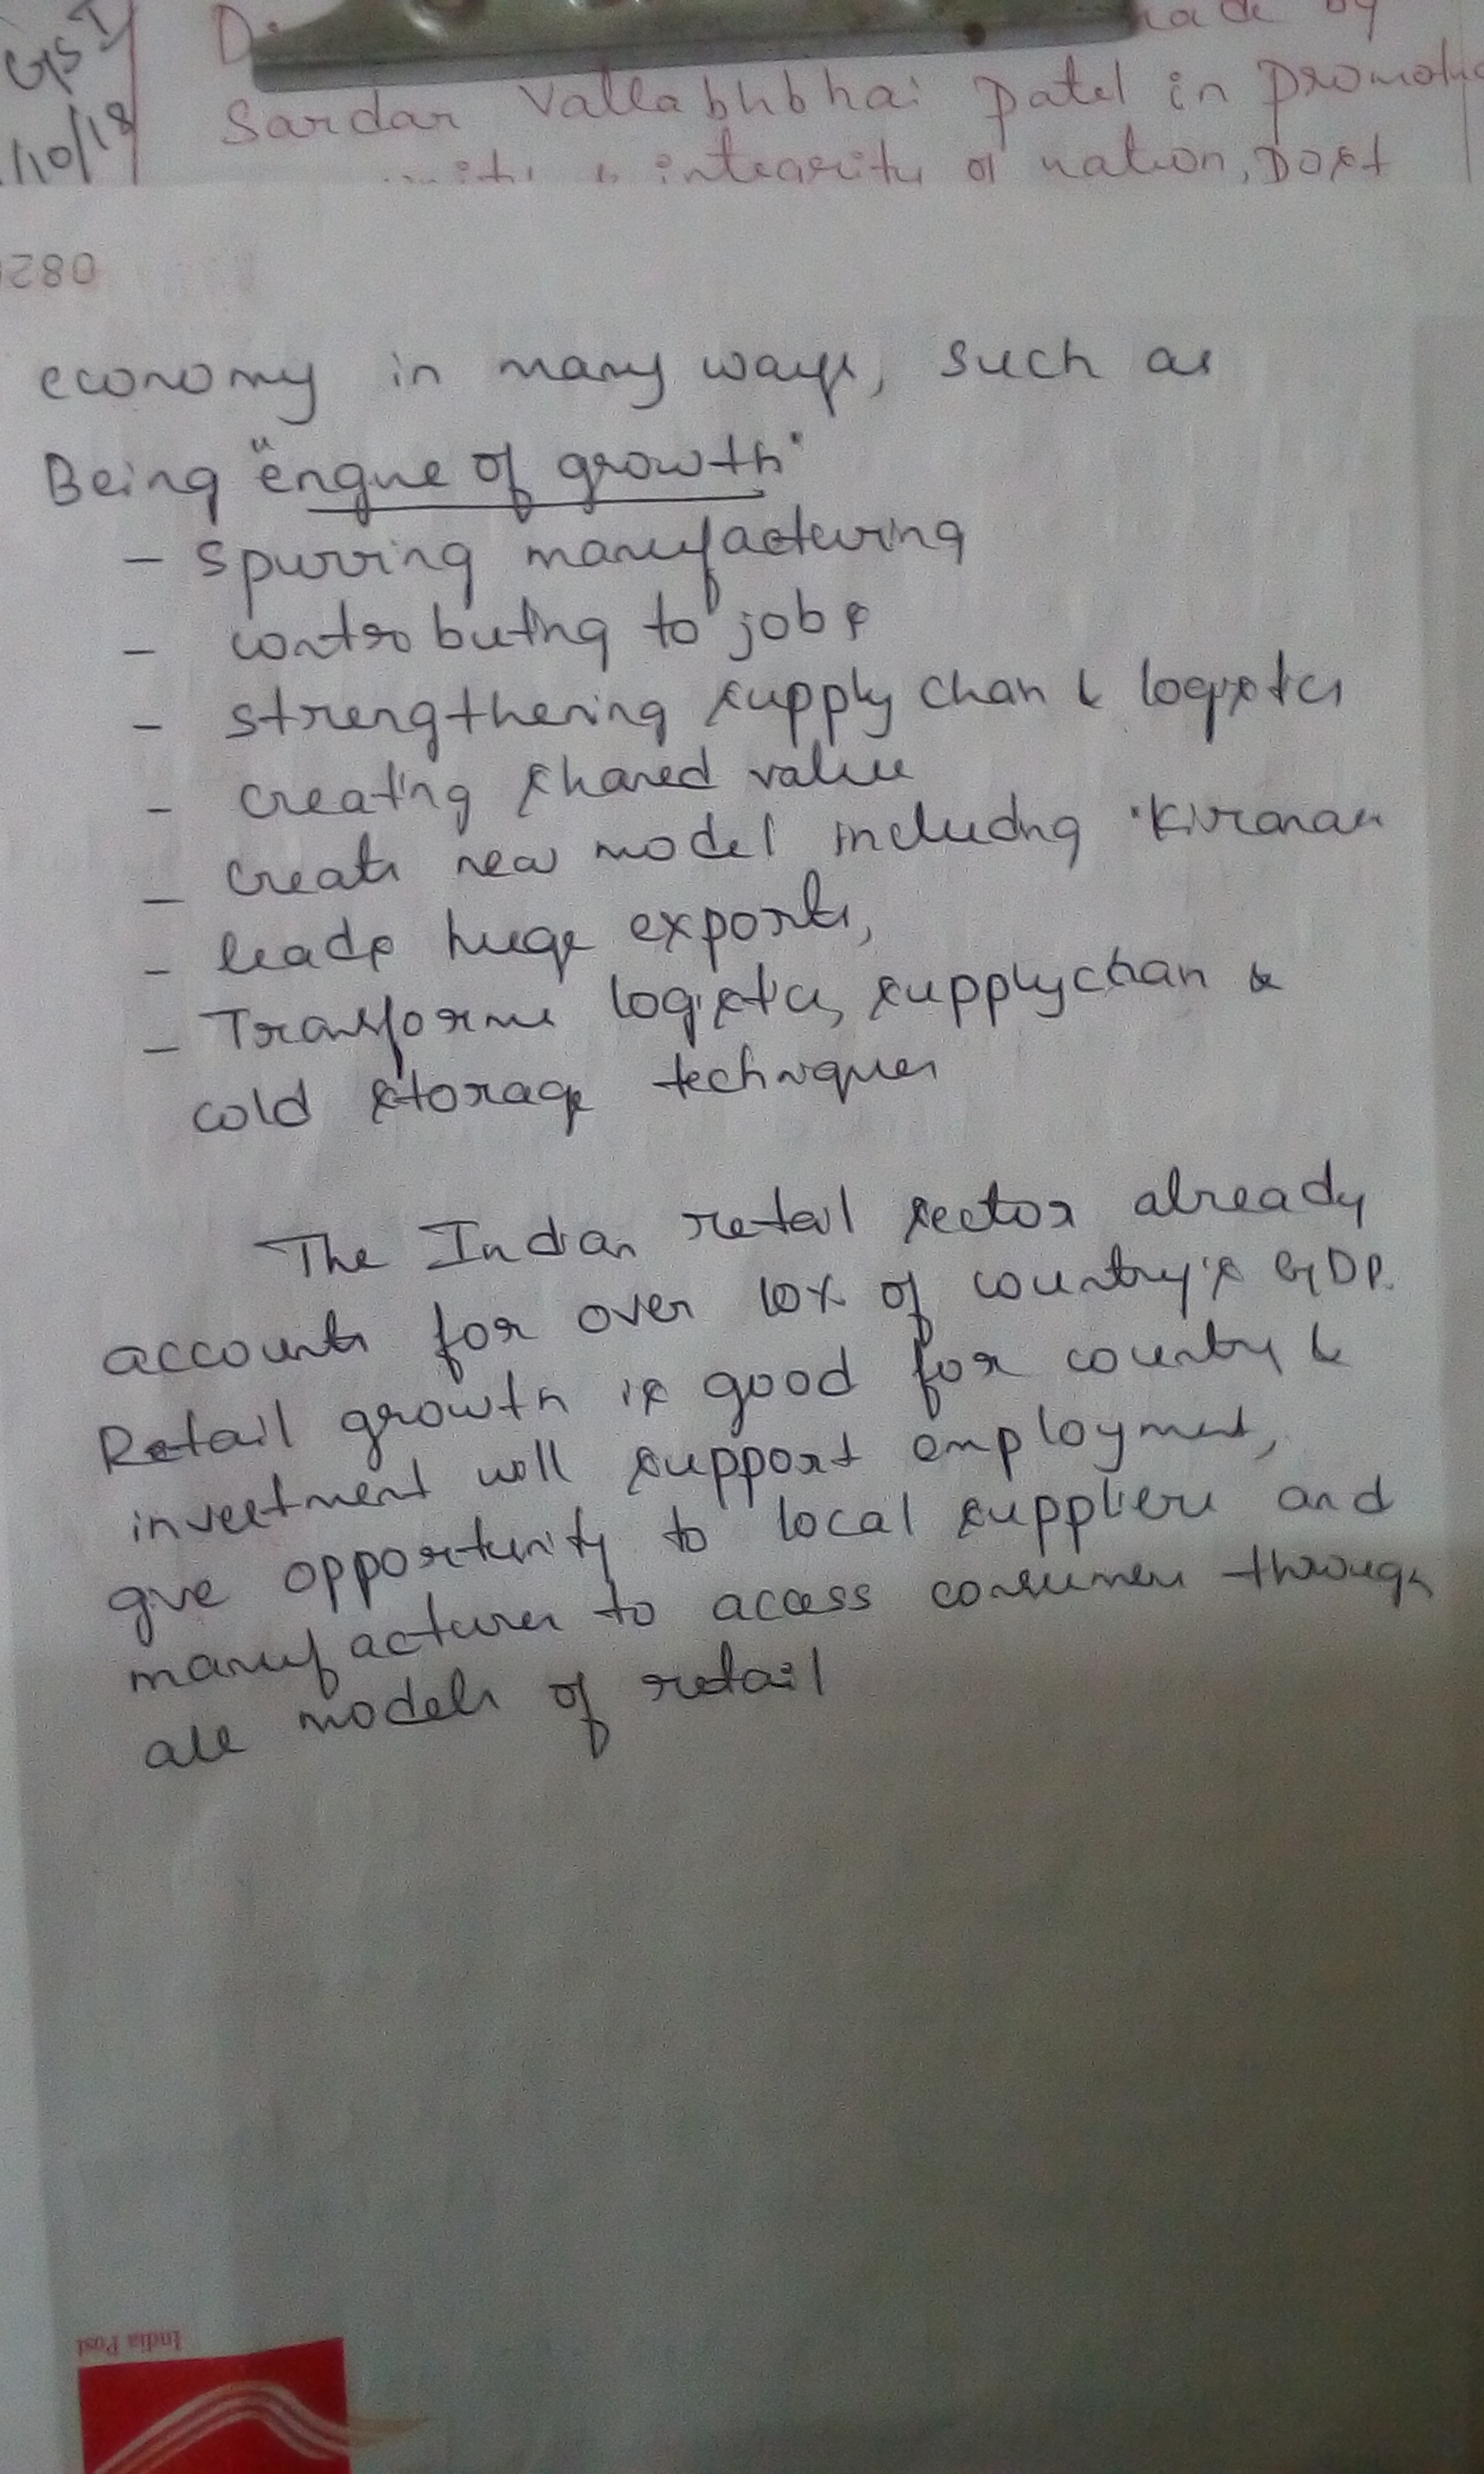 GS I
/10/18
made by
Sardar Vallabhbhai Patel in promoti
integrity of nation, Post
0820
economy in many ways, such as
Being "engine of growth"
- Spurring manufacturing
- contributing to jobs
- strengthening supply chan & logistics
- creating shared value
- create new model including "Kiranas
- leads huge exports,
- Transforms logistics, supplychan &
cold storage techniques
The Indian retail sector already
accounts for over 10% of country's GDP.
Retail growth is good for country &
investment will support employment,
give opportunity to local suppliers and
manufacturer to acess consumers through
all models of retail
India Post